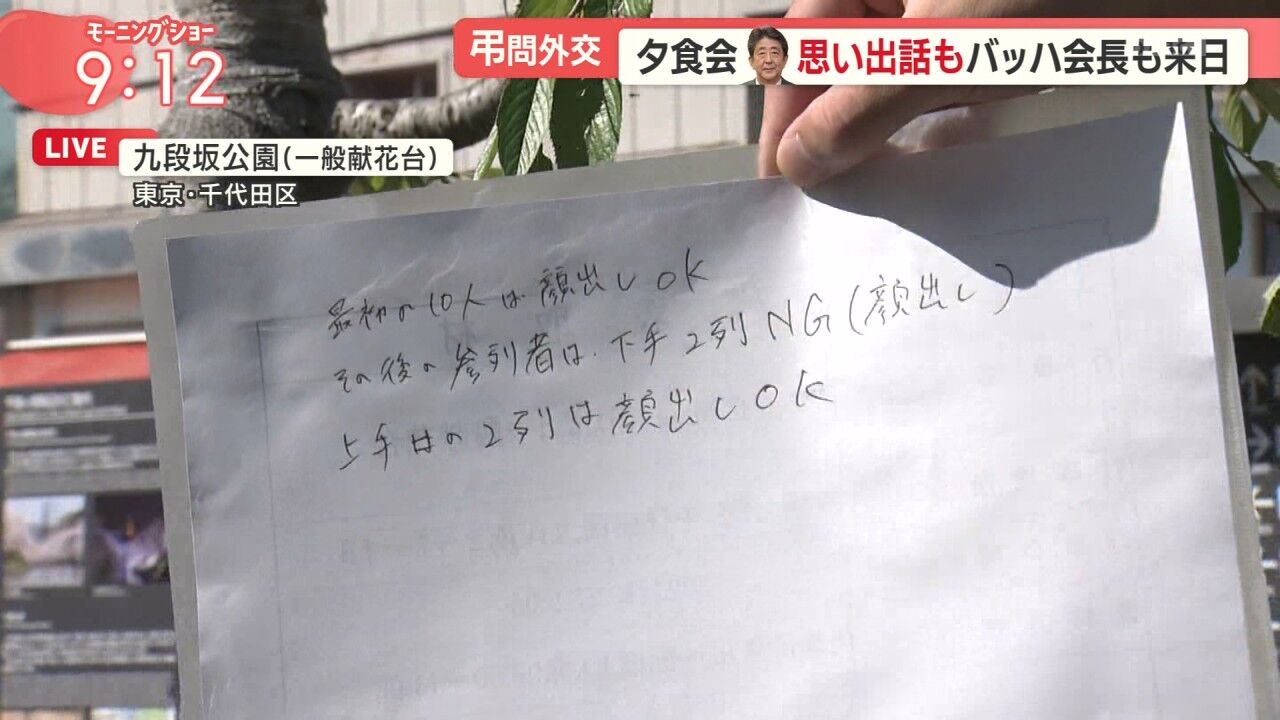 モーニングショー
9:12
弔問外交
夕食会 思い出話もバッハ会長も来日
LIVE
九段坂公園(一般献花台)
東京・千代田区
最初の10人は顔出しOK
その後の参列者は、下手2列NG(顔出し)
上手の2列は顔出しOK